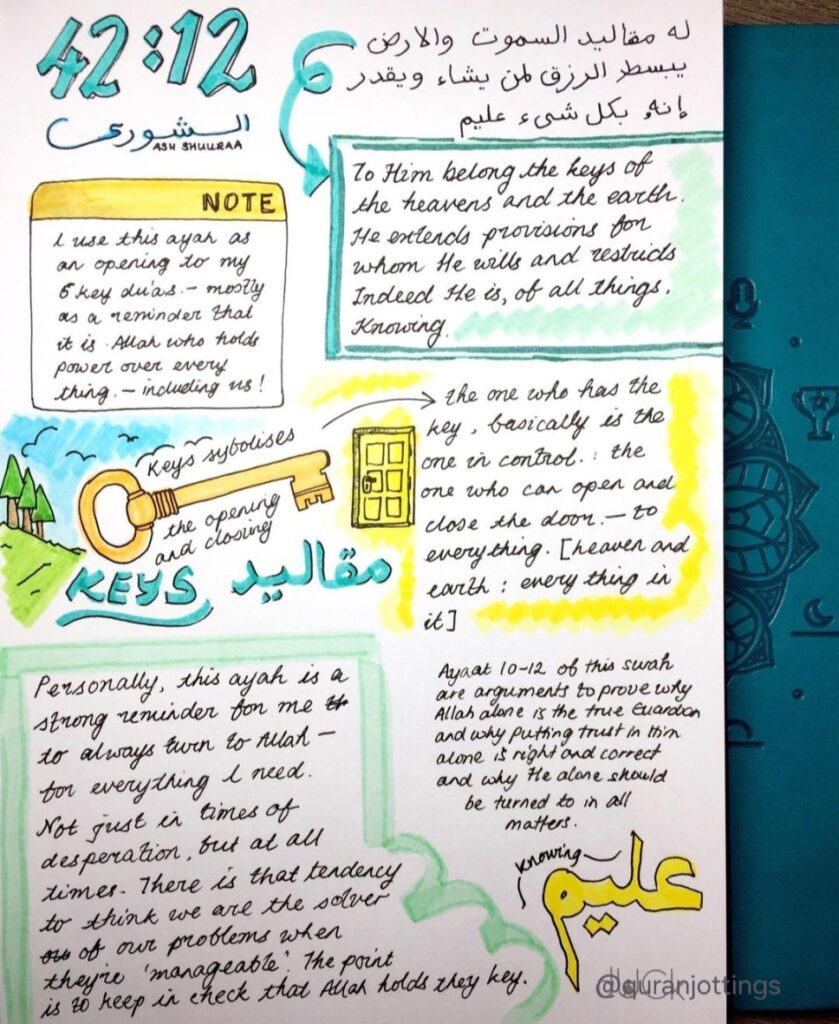 42:12
الشورى
ASH SHUURAA
له مقاليد السموت والارض
يبسطر الرزق لمن يشاء ويقدر
إنه بكل شىء عليم
To Him belong the keys of
the heavens and the earth.
He extends provisions for
whom He wills and restricts
Indeed He is, of all things,
Knowing.
NOTE
I use this ayah as
an opening to my
6 key du'as. - mostly
as a reminder that
it is Allah who holds
power over every
thing. - including us!
Keys sybolises
the opening
and closing
KEYS مقاليد
the one who has the
key, basically is the
one in control. : the
one who can open and
close the door. - to
everything. [heaven and
earth : every thing in
it]
Personally, this ayah is a
strong reminder for me
to always turn to Allah -
for everything I need.
Not just in times of
desperation, but at all
times. There is that tendency
to think we are the solver
of our problems when
they're 'manageable'. The point
is to keep in check that Allah holds they key.
Ayaat 10-12 of this surah
are arguments to prove why
Allah alone is the true Guardian
and why putting trust in Him
alone is right and correct
and why He alone should
be turned to in all
matters.
Knowing
عليم
@quranjottings